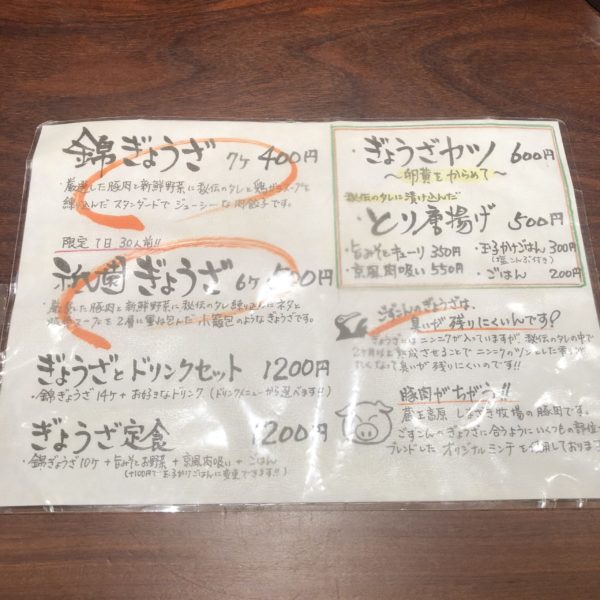 錦ぎょうざ 7ヶ 400円
・厳選した豚肉と新鮮野菜に秘伝のタレと鶏ガラスープと
練り込んだスタンダードでジューシーな肉餃子です。
限定 1日 30人前!!
祇園ぎょうざ 6ヶ 500円
・厳選した豚肉と新鮮野菜に秘伝のタレ練り込んだネタと
スープを2層に重ね包んだ小籠包のようなぎょうざです。
ぎょうざとドリンクセット 1200円
・錦ぎょうざ14ヶ + お好きなドリンク (ドリンクメニューから選べます!!)
ぎょうざ定食 1200円
・錦ぎょうざ10ヶ + 旨みそとお野菜 + 京風肉吸い + ごはん
(+100円で玉子かけごはんに変更できます!!)
ぎょうざカツ 600円
〜卵黄をからめて〜
秘伝のタレに漬け込んだ
とり唐揚げ 500円
・旨みそとキューリ 350円
・玉子かけごはん 300円
(塩こんぶ付き)
・京風肉吸い 550円
・ごはん 200円
ごずこんのぎょうざは、
臭いが残りにくいんです?
ぎょうざにはニンニクが入っていますが、秘伝のタレの中で
2ヶ月以上熟成させることでニンニクのツンとした香りが
なくなって臭いが残りにくいのです!!
豚肉がちがう!!
蔵王高原 しながき牧場の豚肉です。
ごずこんのぎょうざに合うようにいくつもの部位
ブレンドしたオリジナルミンチを使用しております